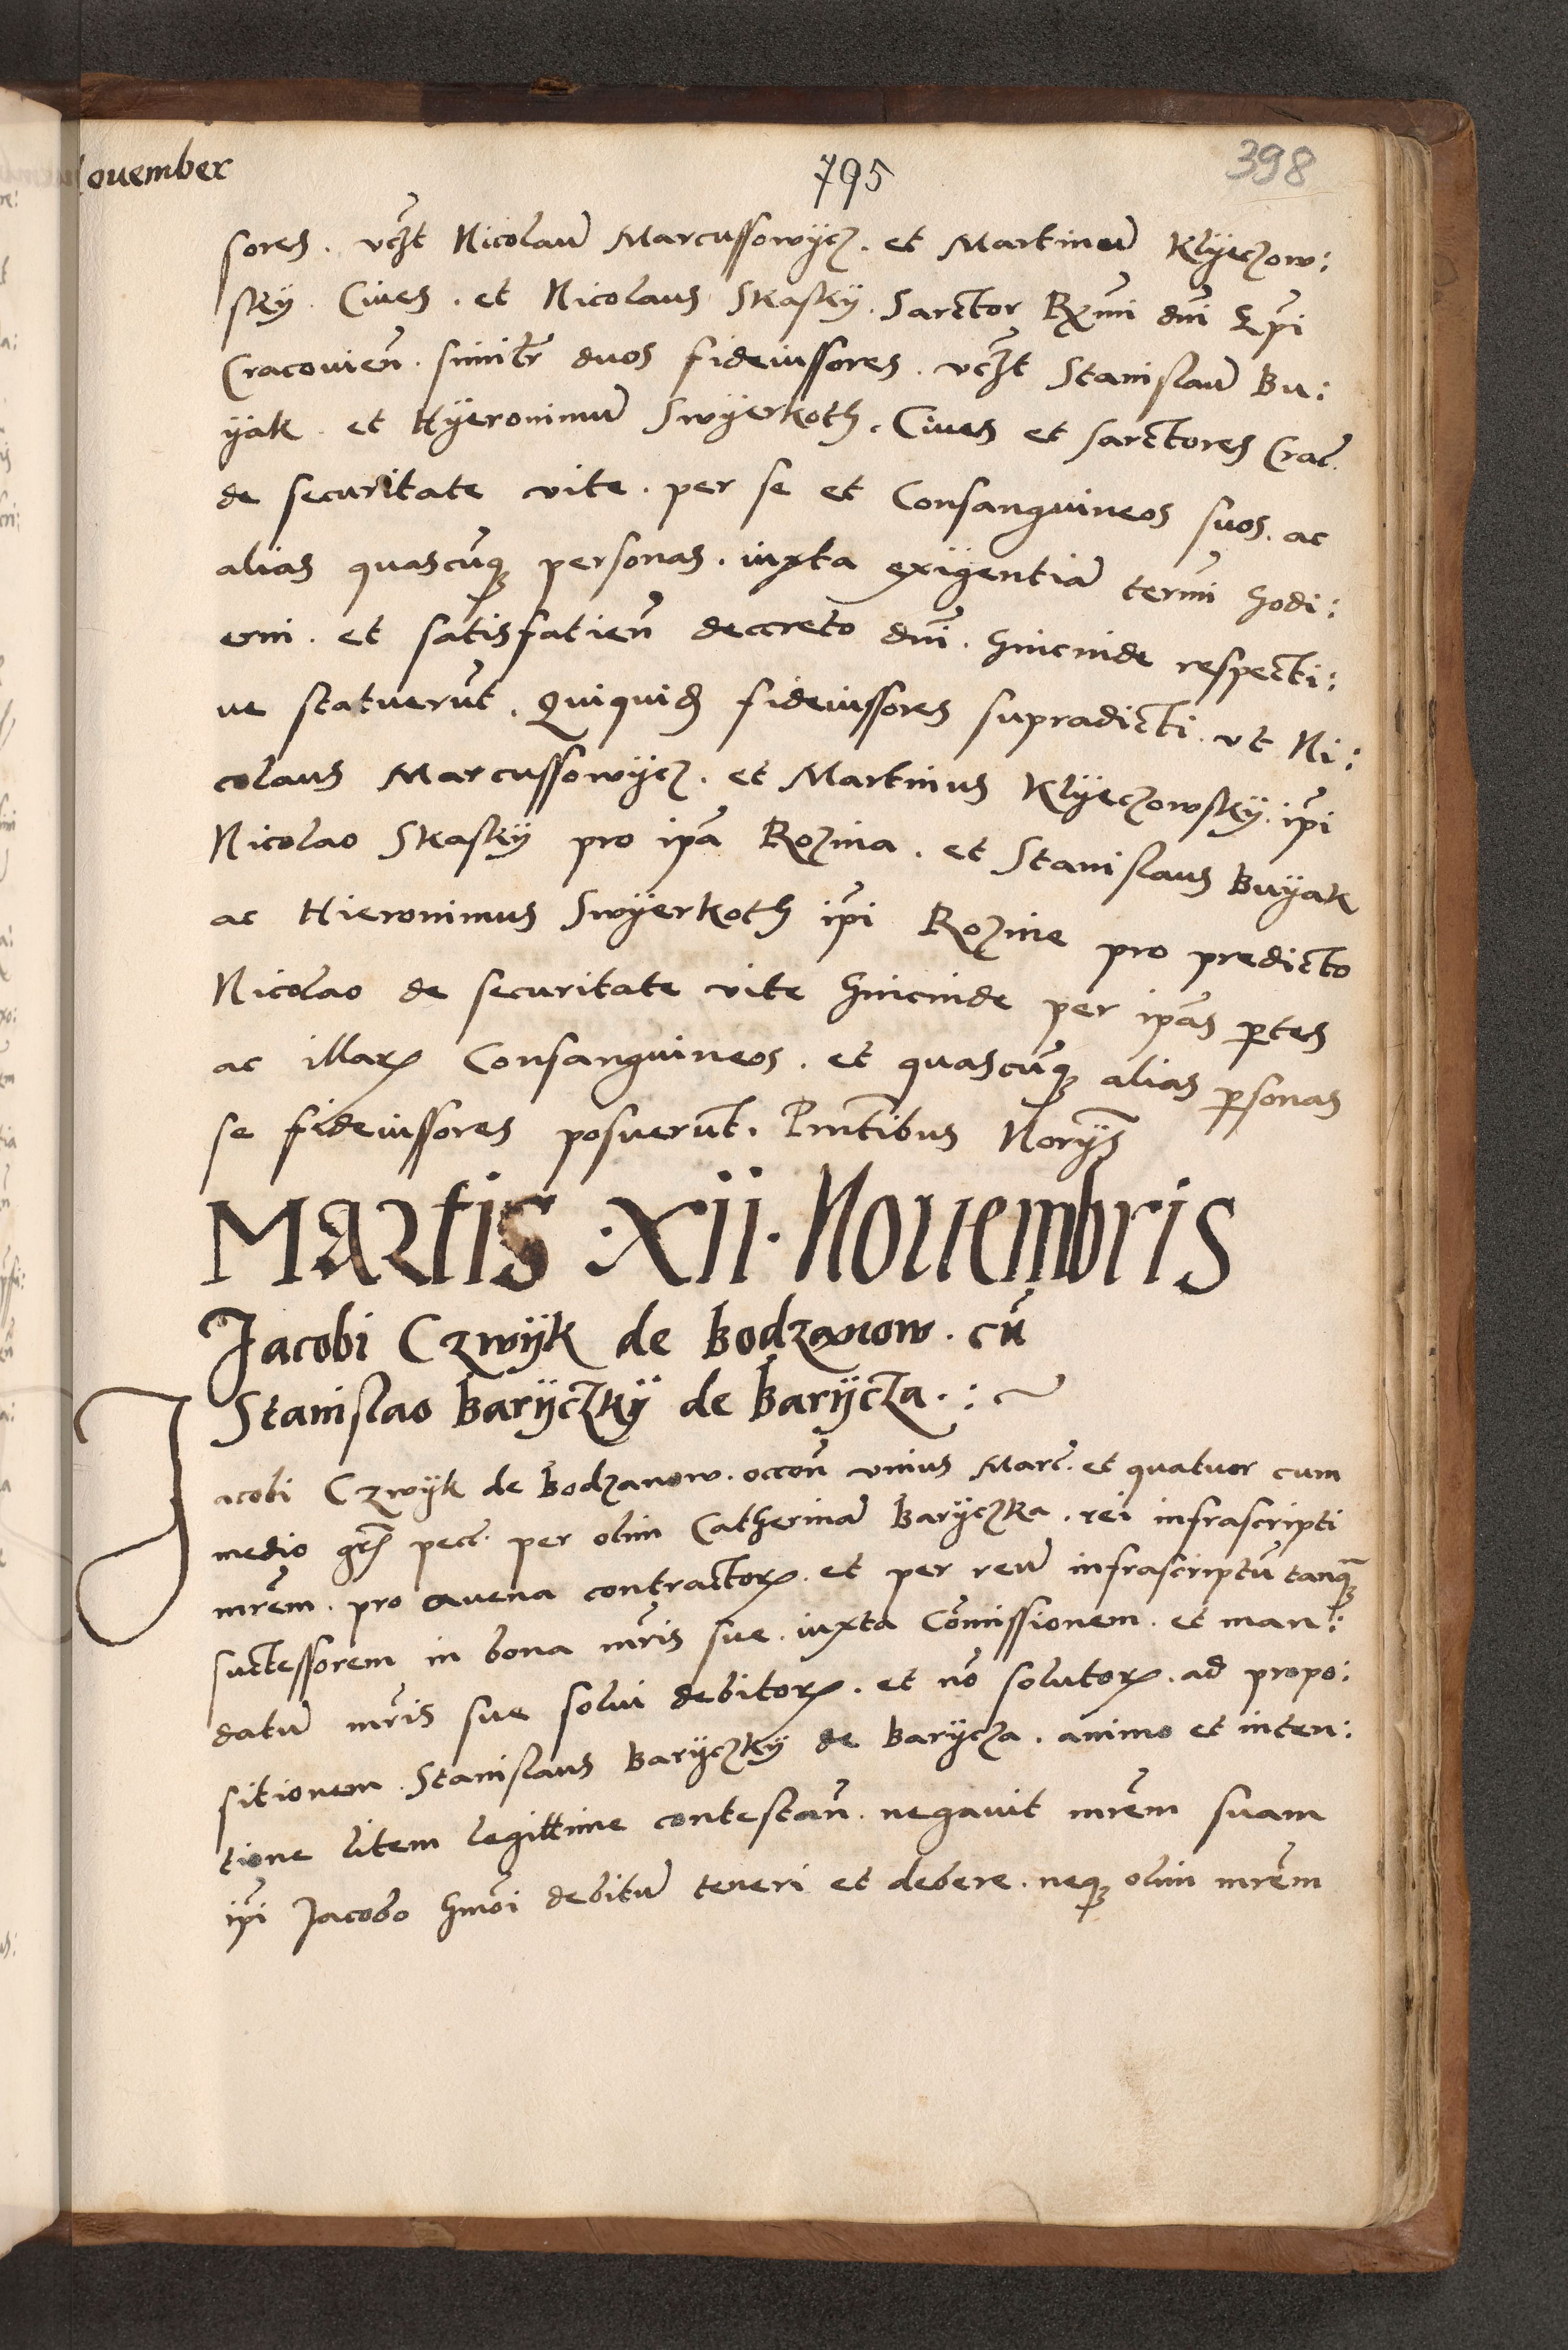 ouember
795
398
sores . vczt Nicolaū Marcussowÿcz . et Martinū Klÿeczow:
skÿ . Ciues . et Nicolaus Skaskÿ . Sarctor Rx̄mi dn̄i Ep̄i
Cracouien̄ . similr̄ duos fideiussores . vczt Stanislaū Bu:
ÿak . et Hÿeronimū Swÿerkoth . Ciues et sarctores Crac̄.
de securitate vite . per se et Consanguineos suos . ac
alias quascūqꝫ personas . iuxta exigentiā term̄i hodi:
erni . et satisfatien̄ decreto dn̄i . hincinde respecti:
ue statuerūt . Quiquid fideiussores supradicti . vt Ni:
colaus Marcussowÿcz . et Martinus Klÿeczowskÿ . ip̄i
Nicolao Skaskÿ pro ip̄a Rozina . et Stanislaus Buÿak
ac Hieronimus Swÿerkoth ip̄i Rozine pro predicto
Nicolao de securitate vite hincinde per ip̄as ꝑtes
ac illaꝝ Consanguineos . et quascūqꝫ alias ꝑsonas
se fideiussores posuerūt . Pn̄tibus Norÿs
Martis . xii . Nouembris
Jacobi Czwÿk de Bodzanow . cū
Stanislao Barÿczkÿ de Barÿcza . :
Jacobi Czwÿk de Bodzanow . occon̄ vnius Marc̄ . et quatuor cum
medio gr̄ pec̄ . per olim Catherinā Barÿczka . rei infrascripti
mr̄em . pro auena contractoꝝ . et per reū infrascriptū tanqꝫ
suctessorem in bona mr̄is sue . iuxta Com̄issionem . et man:
datū mr̄is sue solui debitoꝝ . et nō solutoꝝ . ad propo:
sitionem . Stanislaus Barÿczkÿ de Barÿcza . animo et inten:
tione litem legittime contestan̄ . negauit mr̄em suam
ip̄i Jacobo hmōi debitū teneri et debere . neqꝫ olim mr̄em